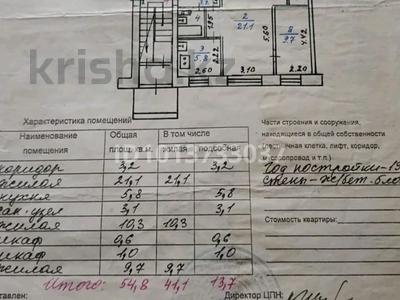 2
21.1
4
3
5.8
8
9.7
2.60
3.10
2.20
2.22
1.95
5.60
4.42
krisha
Характеристика помещений
Наименование помещения
Общая площ. кв.м.
В том числе
жилая
подсобная
коридор 3,2 3,2
жилая 21,1 21,1
кухня 5,8 5,8
сан. узел 3,1 3,1
жилая 10,3 10,3
шкаф 0,6 0,6
шкаф 1,0 1,0
жилая 9,7 9,7
Итого: 54,8 41,1 13,7
Части строения и сооружения,
находящиеся в общей собственности
клетка, лифт, коридор,
и т.п.)
Год постройки-19
стены-ж/бет.бло
Стоимость квартиры:
Директор ЦПН: